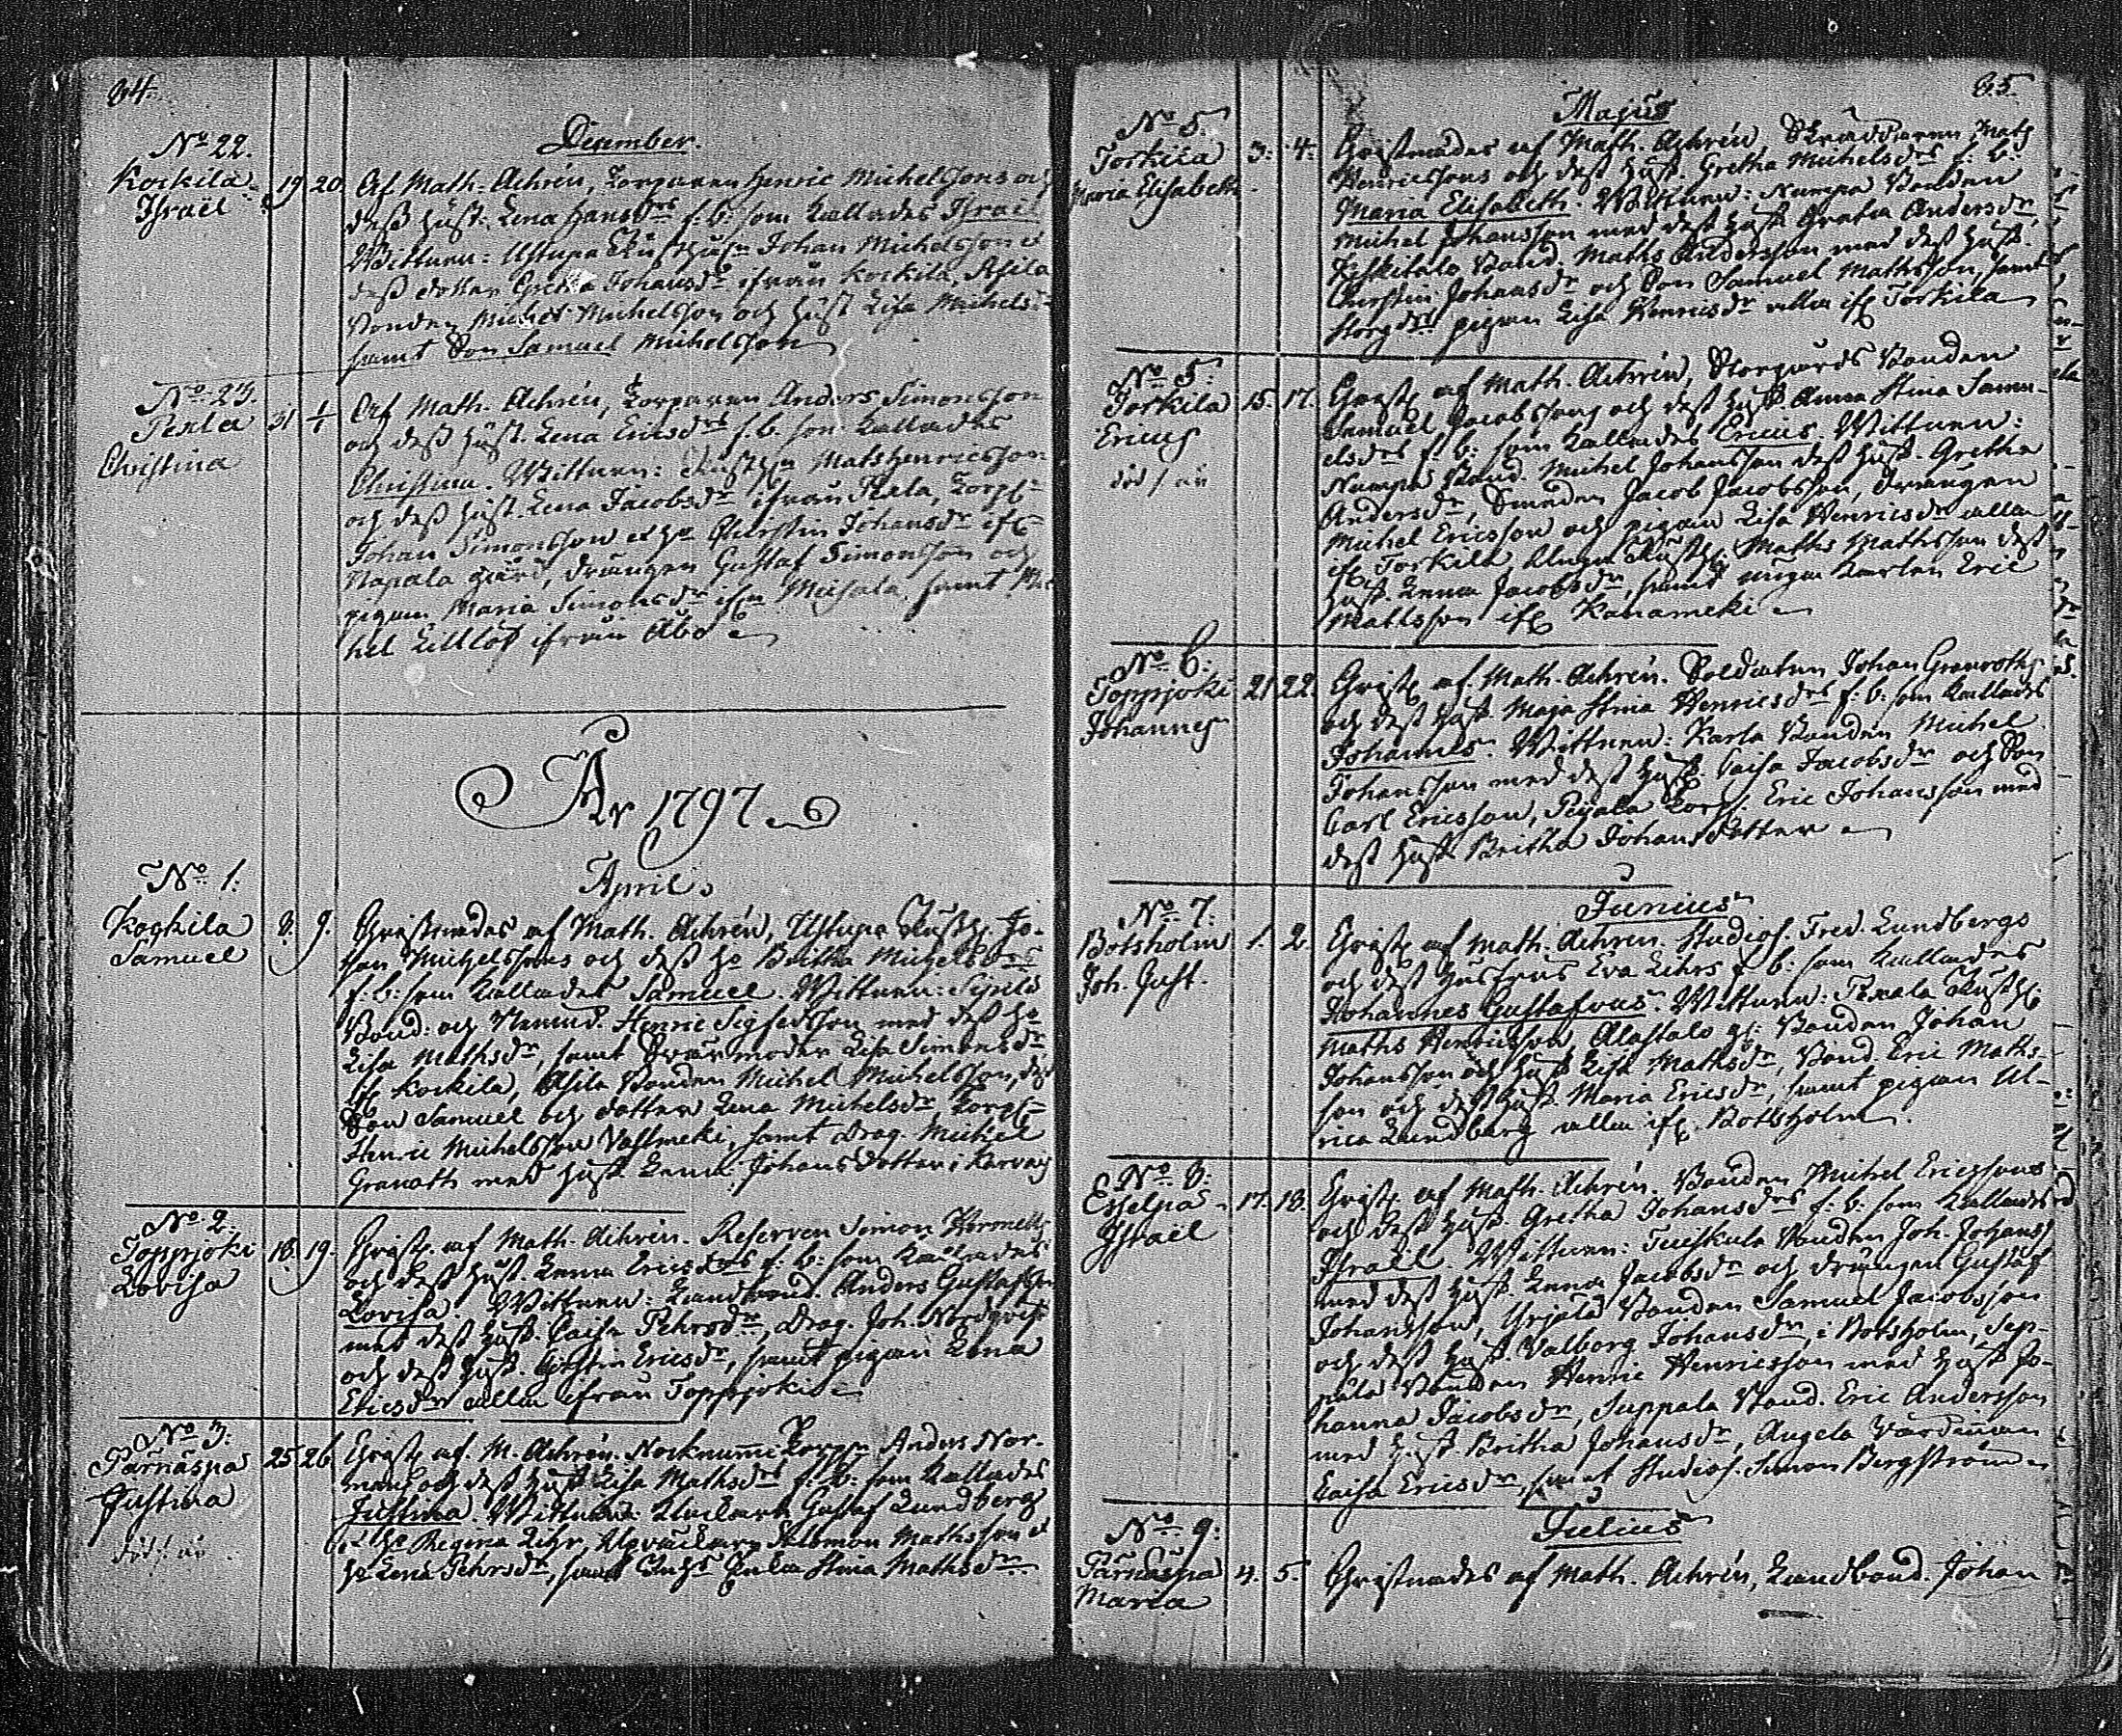 84.
December.
No 22.
Kockila
Israël
19 20.
Af Math. Achrén, Torparen Henric Michelssons och
dess hust. Lena Hansdrs f. b: som kallades Israel
Wittnen: Ustupa Rusth:n Johan Michelsson et
dess dotter Gretha Johansdr ifrån Kockila, Asila
Bonden Michel Michelsson och hust Lisa Michelsdr
samt Son Samuel Michelsson
No 23.
Pexla
Christina
31 1/1
Af Math. Achrén, Torparen Anders Simonsson
och dess hust. Lena Ericsdrs f. b. som kallades
Christina. Wittnen: Rusth:n Mats Henricsson
och dess hust. Lena Jacobsdr ifrån Pexla, Torp:
Johan Simonsson et h:o Christin Johansdr if:
Napala gård, drängen Gustaf Simonsson och
pigan Maria Simonsdr if:n Misala samt Mi-
chel Lilllöf ifrån Åbo
År 1797
April
No 1:
Kockila
Samuel
8. 9.
Christnades af Math. Achrén, Ustupa Rusth. Jo-
han Michelssons och dess h:o Britha Michelsdrs
f. b: som kallades Samuel. Wittnen: Sipilä
Bond: och Nemnd. Henric Sigfredsson med dess h:o
Lisa Mathsdr, samt Swärmoder Lisa Simonsdr
if: Kockila, Asila Bonden Michel Michelsson, dess
Son Samuel och dotter Lena Michelsdr, Torp:
Henric Michelsson Vassmeki, samt Drag. Michel
Granath med hust. Lena Johansdotter i Karvas
No 2:
Toppjoki
Lovisa
18. 19.
Christ. af Math. Achrén. Reserven Simon
och dess hust. Lena Ericsdrs f. b: som kallades
Lovisa. Wittnen: Landbond. Anders Gustafsson
med dess hust. Caisa Pehrsdr, Drag. Joh. Nordqvist
och dess hust. Christin Ericsdr, samt pigan Lena
Ericsdr alla ifrån Toppjoki
No 3:
Pärnäspä
Justina
död 1 år
25 26
Christ. af M. Achrén. Torp:n Anders Nor-
mans och dess hust Lisa Mathsdrs f. b: som kallades
Justina. Wittnen: Gustaf Lundberg
et h:o Regina Lihr, Salomon Mathsson et
h:o Lena Pehrsdr, samt Stina Mathsdr
85.
Majus
No 5.
Torkila
Maria Elisabeth
3. 4.
Christnades af Math. Achrén, Skräddaren Mats
Henricssons och dess hust. Gretha Michelsdrs f. b:
Maria Elisabeth. Wittnen: Numpa Bonden
Michel Johansson med dess hust Gretha Andersdr,
Bond. Maths Andersson med dess hust.
Christin Johansdr och Son Samuel Mathsson, samt
pigan Lisa Henricsdr alla if: Torkila
No 5:
Torkila
Ericus
död 1 år
15. 17.
Christ. af Math. Achrén, Storgårds Bonden
Samuel Jacobssons och dess hust. Anna Stina Samu-
elsdrs f. b: som kallades Ericus. Wittnen:
Numpa Bond. Michel Johansson dess hust. Gretha
Andersdr, Smeden Jacob Jacobsson, drängen
Michel Ericsson och pigan Lisa Henricsdr alla
if: Torkila, Rusth: Maths Mathsson dess
hust. Lena Jacobsdr, samt unga Karlen Eric
Mattsson if: Kanameki
No 6:
Toppjoki
Johannes
21 22.
Christ. af Math. Achrén. Soldaten Johan Granroths
och dess hust. Maja Stina Henricsdrs f: b: som kallades
Johannes. Wittnen: Karla Bonden Michel
Johansson med dess hust. Caisa Jacobsdr och Son
Carl Ericsson, Torp: Eric Johansson med
dess hust. Britha Johansdotter
Junius
No 7:
Botsholm
Joh. Gust.
1. 2.
Christ. af Math. Achrén. Studios. Fred. Lundbergs
och dess hustrus Eva Lihrs f. b: som kallades
Johannes Gustafvus. Wittnen: Pexala Rusth:
Maths Henricsson, Alastalo g: Bonden Johan
Johansson och hust Lisa Mathsdr, Bond. Eric Maths-
son och dess hust. Maria Ericsdr, samt pigan Ul-
rica Lundberg alla if: Bottsholm.
No 8:
Esselpä
Israël
17. 18.
Christ. af Math. Achrén. Bonden Michel Ericssons
och dess hust. Gretha Johansdrs f. b: som kallades
Israël. Wittnen: Tuiskula Bonden Joh. Johanss.
med dess hust. Lena Jacobsdr och drängen Gustaf
Johansson, Yrjälä Bonden Samuel Jacobsson
och dess hust. Valborg Johansdr, i Botsholm, Sep-
pälä Bonden Henric Henricsson med hust Jo-
hanna Jacobsdr, Suppala Bond. Eric Andersson
med hust Britha Johansdr, Angela
Caisa Ericsdr, samt Studios. Simon Bergström
Julius
No 9:
Pärnäspä
Maria
4. 5.
Christnades af Math. Achrén, Landbond. Johan